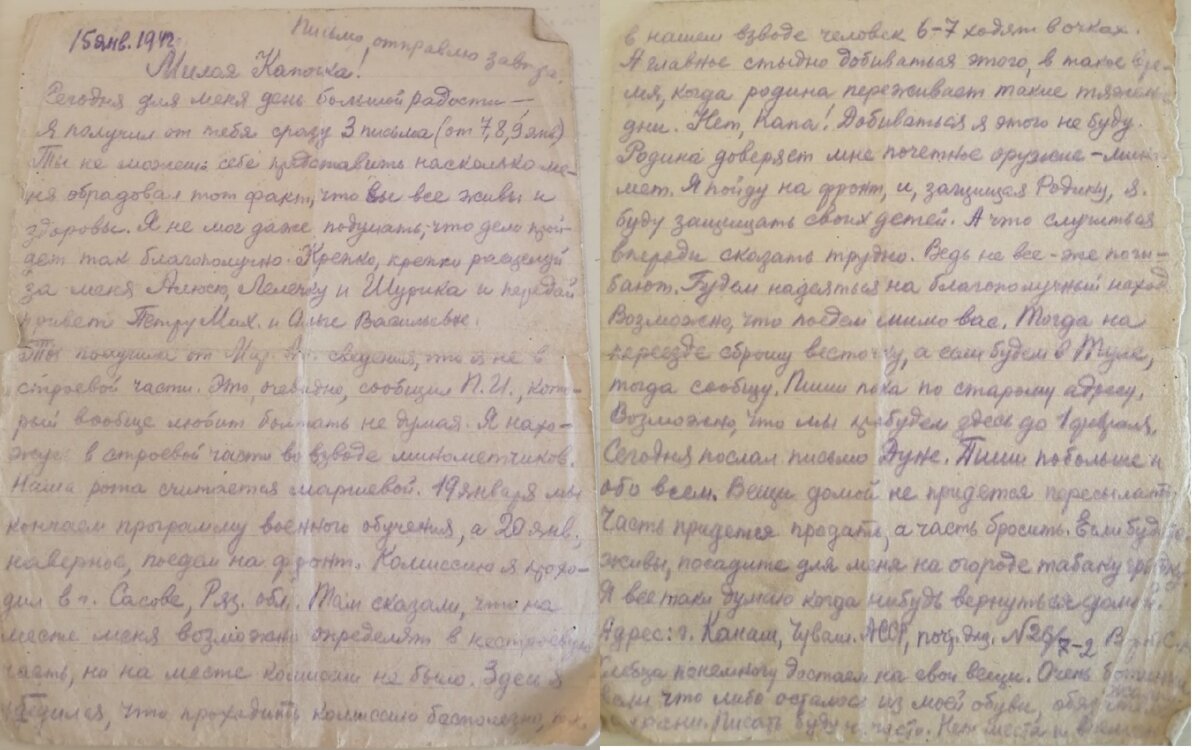 15 янв. 1942г. Письмо, отправлю завтра.
Милая Капочка!
Сегодня для меня день большой радости —
я получил от тебя сразу 3 письма (от 7, 8, 9 янв)
Ты не можешь себе представить насколько ме-
ня обрадовал тот факт, что вы все живы и
здоровы. Я не мог даже подумать, что дело прой-
дет так благополучно. Крепко, крепко расцелуй
за меня Алюсю, Лелечку и Шурика и передай
привет Петру Мих. и Ольге Васильевне.
Ты получила от Мар. сведения, что я не в
строевой части. Это, очевидно, сообщил П.И., кото-
рый вообще любит болтать не думая. Я нахо-
жусь в строевой части во взводе минометчиков.
Наша рота считается маршевой. 19 января мы
кончаем программу военного обучения, а 20 янв.,
наверное, поедем на фронт. Комиссию я прохо-
дил в г. Сасове, Ряз. обл. Там сказали, что на
месте меня возможно определят в нестроевую
часть, но на месте комиссии не было. Здесь я
убедился, что проходить комиссию бесполезно, т.к.
в нашем взводе человек 6-7 ходят в очках.
А главное стыдно добиваться этого, в такое вре-
мя, когда родина переживает такие тяжелые
дни. Нет, Капа! Добиваться я этого не буду.
Родина доверяет мне почетное оружие - мино-
мет. Я пойду на фронт, и, защищая Родину, я
буду защищать своих детей. А что случиться
впереди сказать трудно. Ведь не все-же поги-
бают. Будем надеяться на благополучный исход.
Возможно, что поедем мимо вас. Тогда на
переезде сброшу весточку, а если будем в Туле,
тогда сообщу. Пиши пока по старому адресу.
Возможно, что мы пробудем здесь до 1 февраля.
Сегодня послал письмо Дуне. Пиши побольше и
обо всем. Вещи домой не придется пересылать.
Часть придется продать, а часть бросить. Если будете
живы, посадите для меня на огороде табаку грядку.
Я все таки думаю когда нибудь вернуться домой.
Адрес: г. Канаш, Чуваш. АССР, почт. ящ. №26/7-2
Хлебца понемногу достаем на свои вещи. Очень
если что либо осталось из моей обуви,
сохрани. Писать буду часто. Нет места и